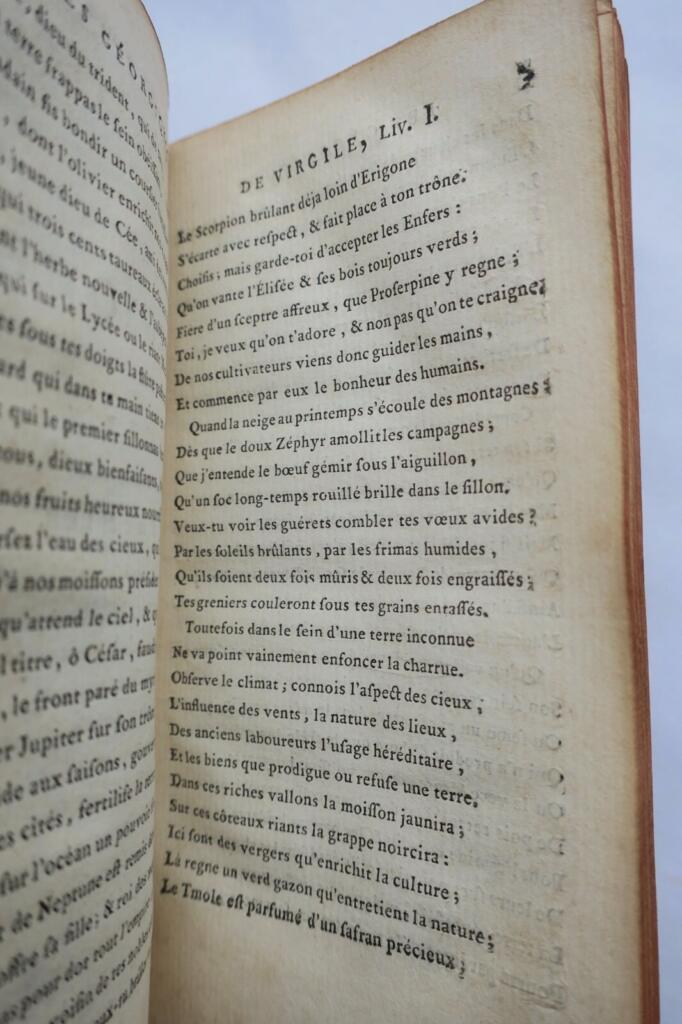 LES GÉORG
, dieu du trident, qui
terre frappas le sein
fis bondir un
, dont l'olivier enrichit
, jeune dieu de Cée,
qui trois cents taureaux
l'herbe nouvelle &
qui sur le Lycée ou le
sous tes doigts la
qui dans ta main
qui le premier sillonnas
vous, dieux bienfaisants,
nos fruits heureux
l'eau des cieux,
à nos moissons
qu'attend le ciel, &
titre, ô César,
, le front paré du
Jupiter sur son
aux saisons,
cités, fertilise la
sur l'océan un pouvoir
de Neptune est
sa fille; & roi des
pour dot tout l'empire
de tes
DE VIRGILE, Liv. I. 3
Le Scorpion brûlant déja loin d'Erigone
S'écarte avec reſpect, & fait place à ton trône.
Choiſis; mais garde-toi d'accepter les Enfers:
Qu'on vante l'Éliſée & ſes bois toujours verds;
Fiere d'un ſceptre affreux, que Proſerpine y regne;
Toi, je veux qu'on t'adore, & non pas qu'on te craigne.
De nos cultivateurs viens donc guider les mains,
Et commence par eux le bonheur des humains.
Quand la neige au printemps s'écoule des montagnes;
Dès que le doux Zéphyr amollit les campagnes;
Que j'entende le bœuf gémir ſous l'aiguillon,
Qu'un ſoc long-temps rouillé brille dans le ſillon.
Veux-tu voir les guérets combler tes vœux avides?
Par les ſoleils brûlants, par les frimas humides,
Qu'ils ſoient deux fois mûris & deux fois engraiſſés;
Tes greniers couleront ſous tes grains entaſſés.
Toutefois dans le ſein d'une terre inconnue
Ne va point vainement enfoncer la charrue.
Obſerve le climat; connois l'aſpect des cieux;
L'influence des vents, la nature des lieux,
Des anciens laboureurs l'uſage héréditaire,
Et les biens que prodigue ou refuſe une terre.
Dans ces riches vallons la moiſſon jaunira;
Sur ces côteaux riants la grappe noircira:
Ici ſont des vergers qu'enrichit la culture;
Là regne un verd gazon qu'entretient la nature;
Le Tmole eſt parfumé d'un ſafran précieux;